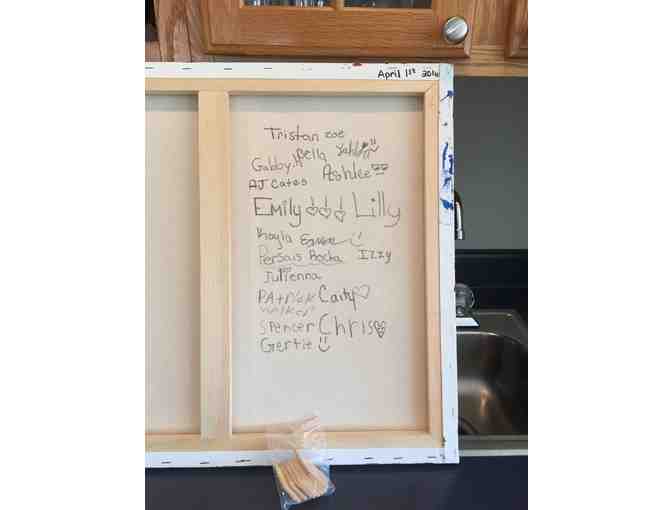 April 1st 2016
Tristan zoe
Bella
Gabby
Ashlee
AJ Cates
Emily Lilly
Kayla
Persais Rocha Izzy
Julienna
PAtrick Caity
walker
Spencer Chris
Gertie